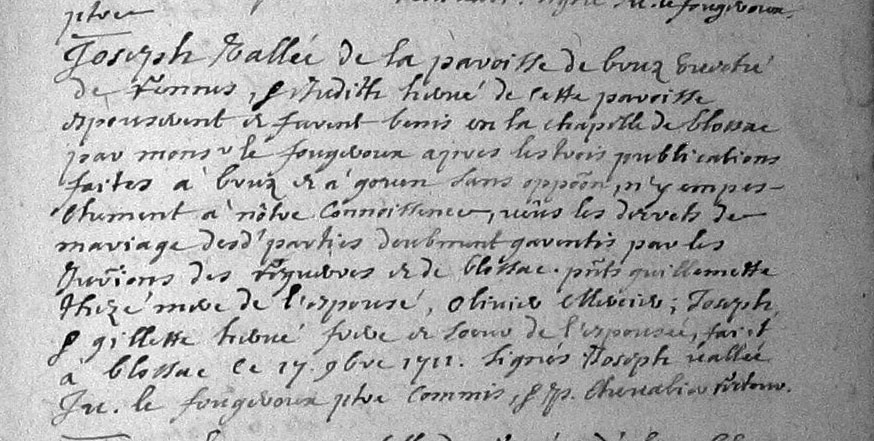 ptre
Joseph Vallée de la paroisse de bruz Evesché
de Rennes, & Judith hervé de cette paroisse
espouserent et furent benis en la chapelle de blossac
par monsr le fougeroux apres les trois publications
faites à bruz et à goven sans oppõon, n'y empes-
chement à nôtre Connoissence, veûs les decrets de
mariage desd' parties deubment garentis par les
Jurions des et de blossac. pñts guillemette
mere de l'espousé, olivier Mercier; Joseph
& gillette hervé frere et soeur de l'espousée, fait
à blossac Ce 17. 9bre 1711. Signés Joseph vallée
le fougeroux ptre Commis, & p. Chevalier recteur.